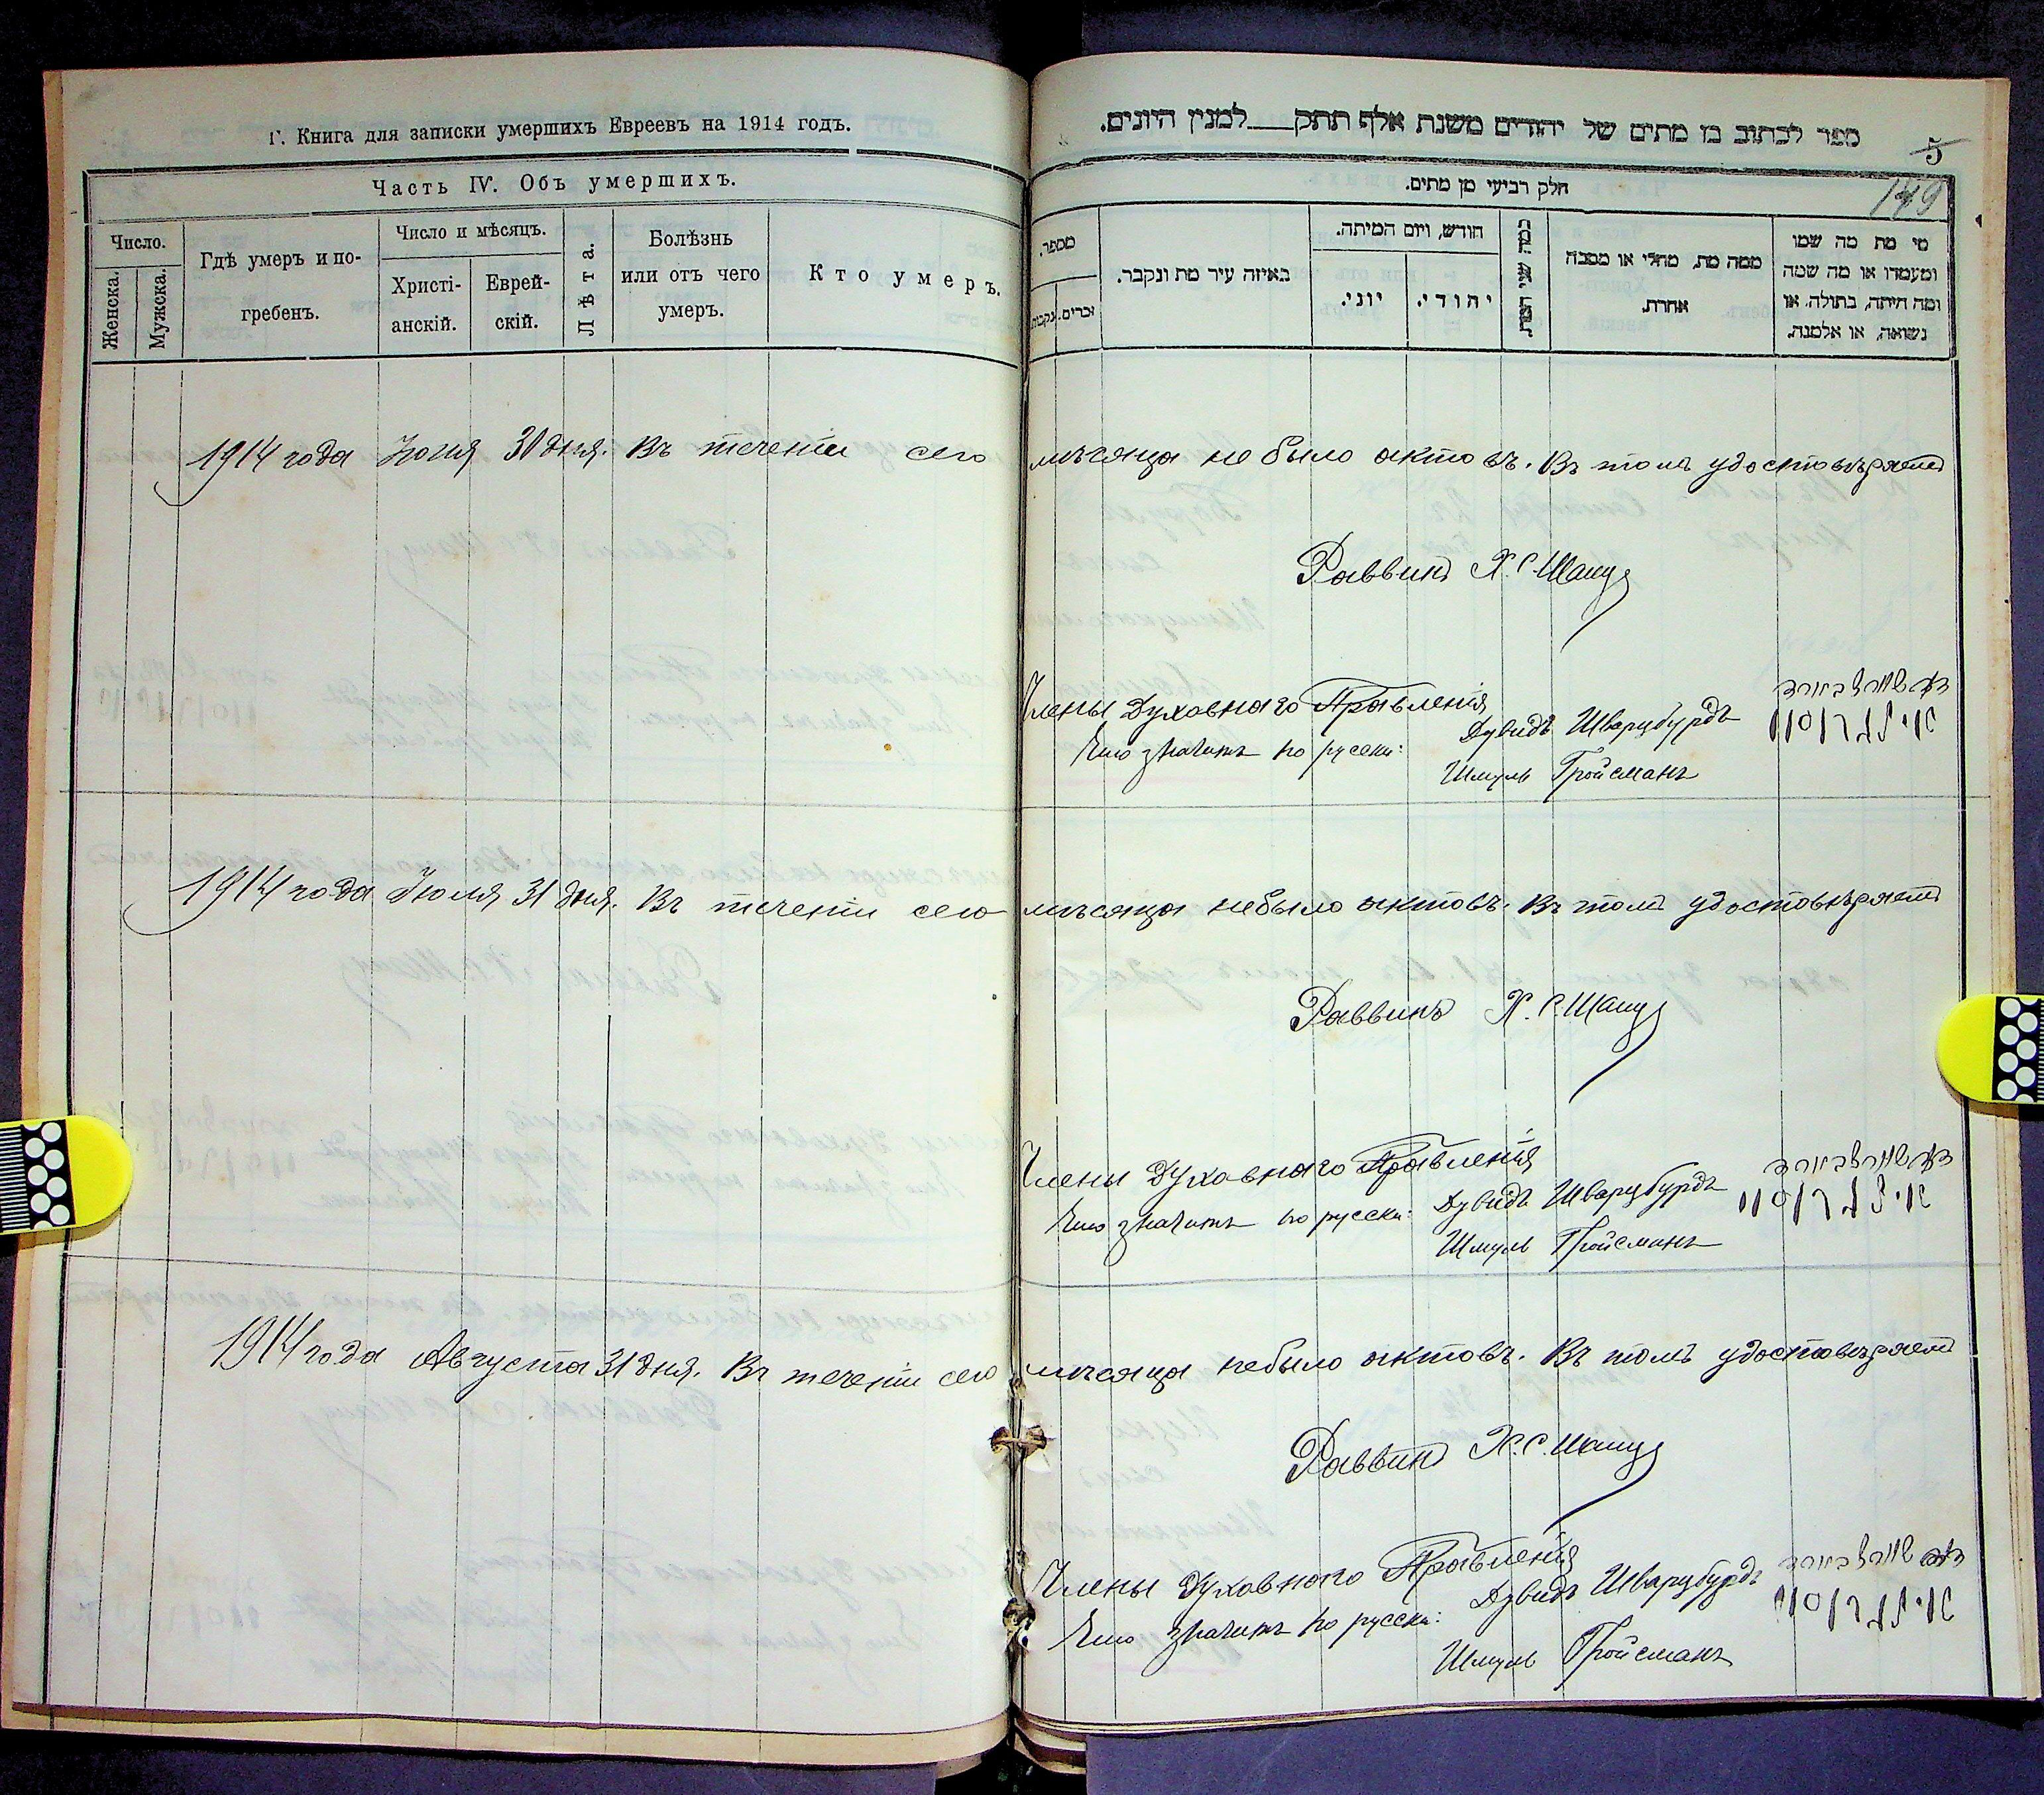 Г. Книга для записки умершихъ Евреевъ на 1914 годъ.
Часть IV. Объ умершихъ.
Число.
Женска.
Мужска.
Гдѣ умеръ и по-
гребенъ.
Число и мѣсяцъ.
Христі-
анскій.
Еврей-
скій.
Лѣта.
Болѣзнь
или отъ чего
умеръ.
Кто умеръ.
ספר לכתוב בו מתים של יהודים משנת אלף תתק___למנין היונים.
5
149
חלק רביעי מן מתים.
מספר.
זכרים.
נקבות.
באיזה עיר מת ונקבר.
חודש, ויום המיתה.
יוני.
יהודי.
כמה שני המת.
ממה מת, מחלי או מסבה
אחרת.
מי מת מה שמו
ומעמדו או מה שמה
ומה היתה, בתולה, או
נשואה, או אלמנה.
1914 года Іюня 30 дня. Въ теченіи сего мѣсяца не было актовъ. Въ томъ удостовѣряетъ
Раввинъ Х. С. Шацъ
Члены Духовнаго Правленія
Что значитъ по русски: Дувидъ Шварцбурдъ
Шмуль Гройсманъ
1914 года Іюля 31 дня. Въ теченіи сего мѣсяца не было актовъ. Въ томъ удостовѣряетъ
Раввинъ Х. С. Шацъ
Члены Духовнаго Правленія
Что значитъ по русски: Дувидъ Шварцбурдъ
Шмуль Гройсманъ
1914 года Августа 31 дня. Въ теченіи сего мѣсяца не было актовъ. Въ томъ удостовѣряетъ
Раввинъ Х. С. Шацъ
Члены Духовнаго Правленія
Что значитъ по русски: Дувидъ Шварцбурдъ
Шмуль Гройсманъ